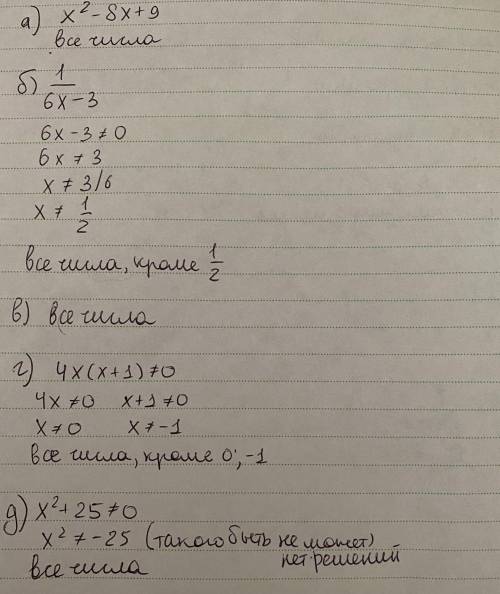 а) x² - 8x + 9
все числа
б) 1/(6x - 3)
6x - 3 ≠ 0
6x ≠ 3
x ≠ 3/6
x ≠ 1/2
все числа, кроме 1/2
в) все числа
г) 4x(x+1) ≠ 0
4x ≠ 0 x+1 ≠ 0
x ≠ 0 x ≠ -1
все числа, кроме 0; -1
д) x² + 25 ≠ 0
x² ≠ -25 (такого быть не может)
нет решений
все числа